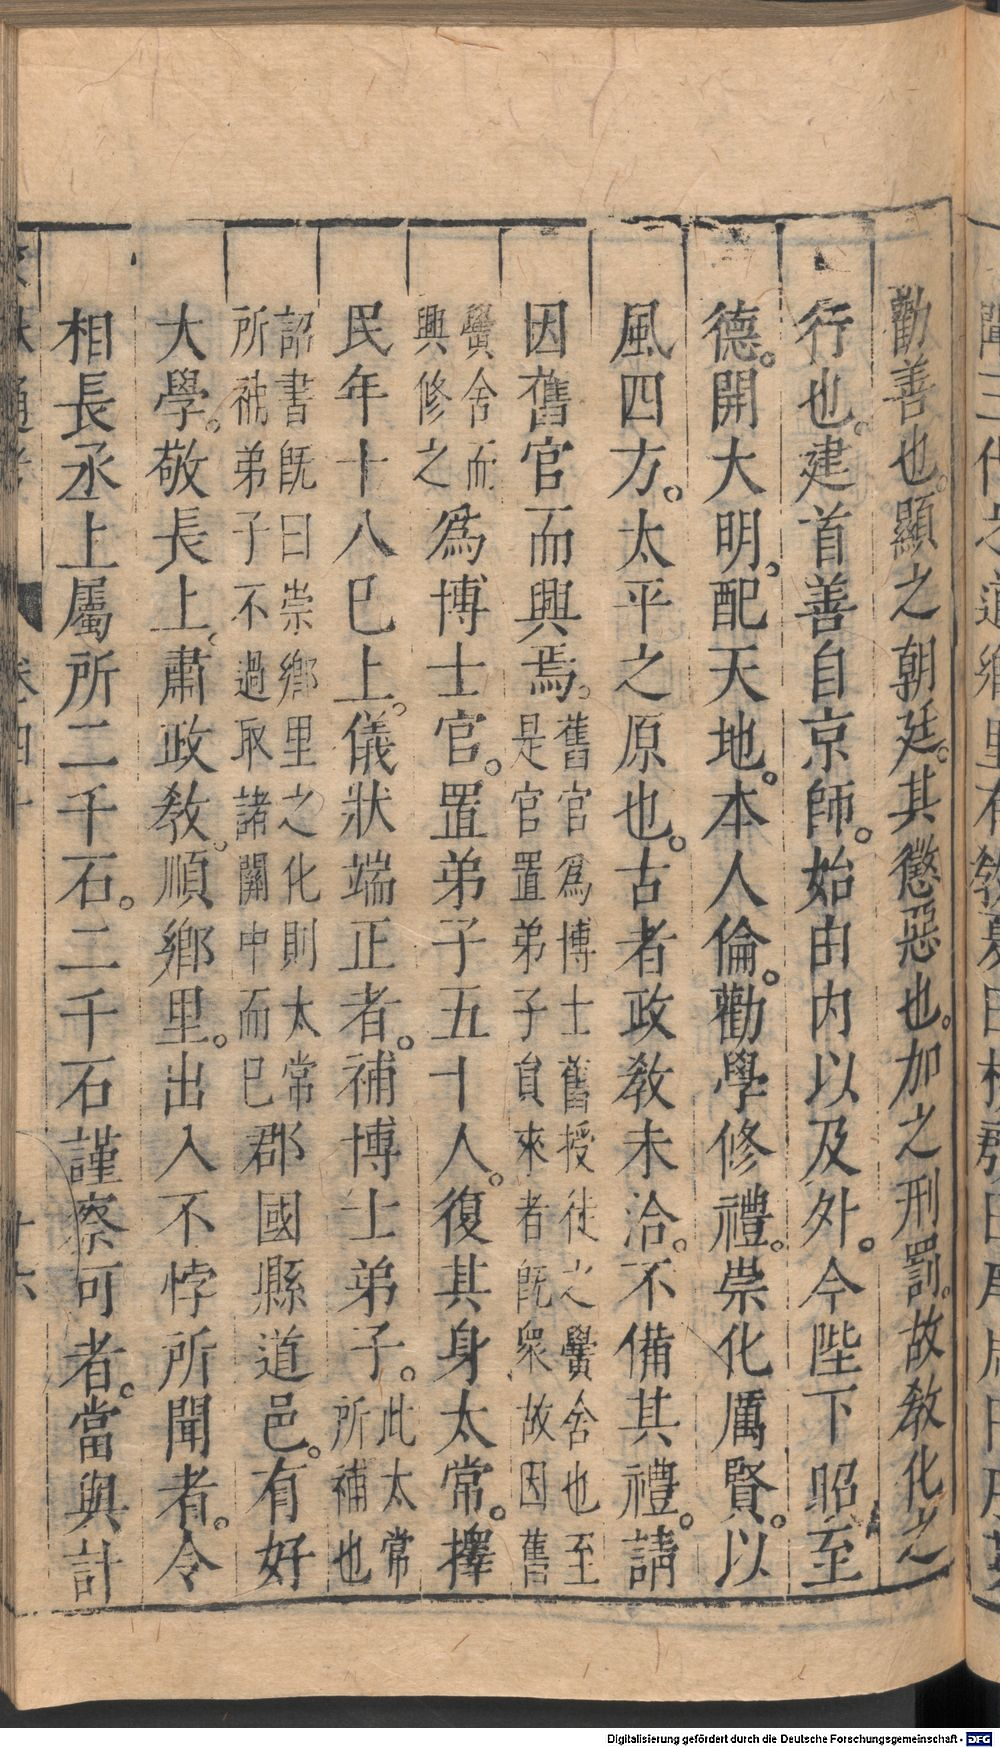 勸善也。顯之朝廷。其懲惡也。加之刑罰。故教化之
行也。建首善自京師。始由内以及外。今陛下昭至
德。開大明。配天地。本人倫。勸學修禮。崇化厲賢。以
風四方。太平之原也。古者政教未洽。不備其禮。請
因舊官而興焉。舊官爲博士舊授徒之黌舍也至
是官置弟子員來者旣衆故因舊
黌舍而
興修之爲博士官。置弟子五十人。復其身太常。擇
民年十八巳上。儀狀端正者。補博士弟子。此太常
所補也
詔書旣曰崇鄉里之化則太常
所補弟子不過取諸關中而巳郡國縣道邑。有好
大學。敬長上。肅政教。順鄉里。出入不悖所聞者。令
相長丞上屬所二千石。二千石謹察可者。當與計
Digitalisierung gefördert durch die Deutsche Forschungsgemeinschaft - DFG